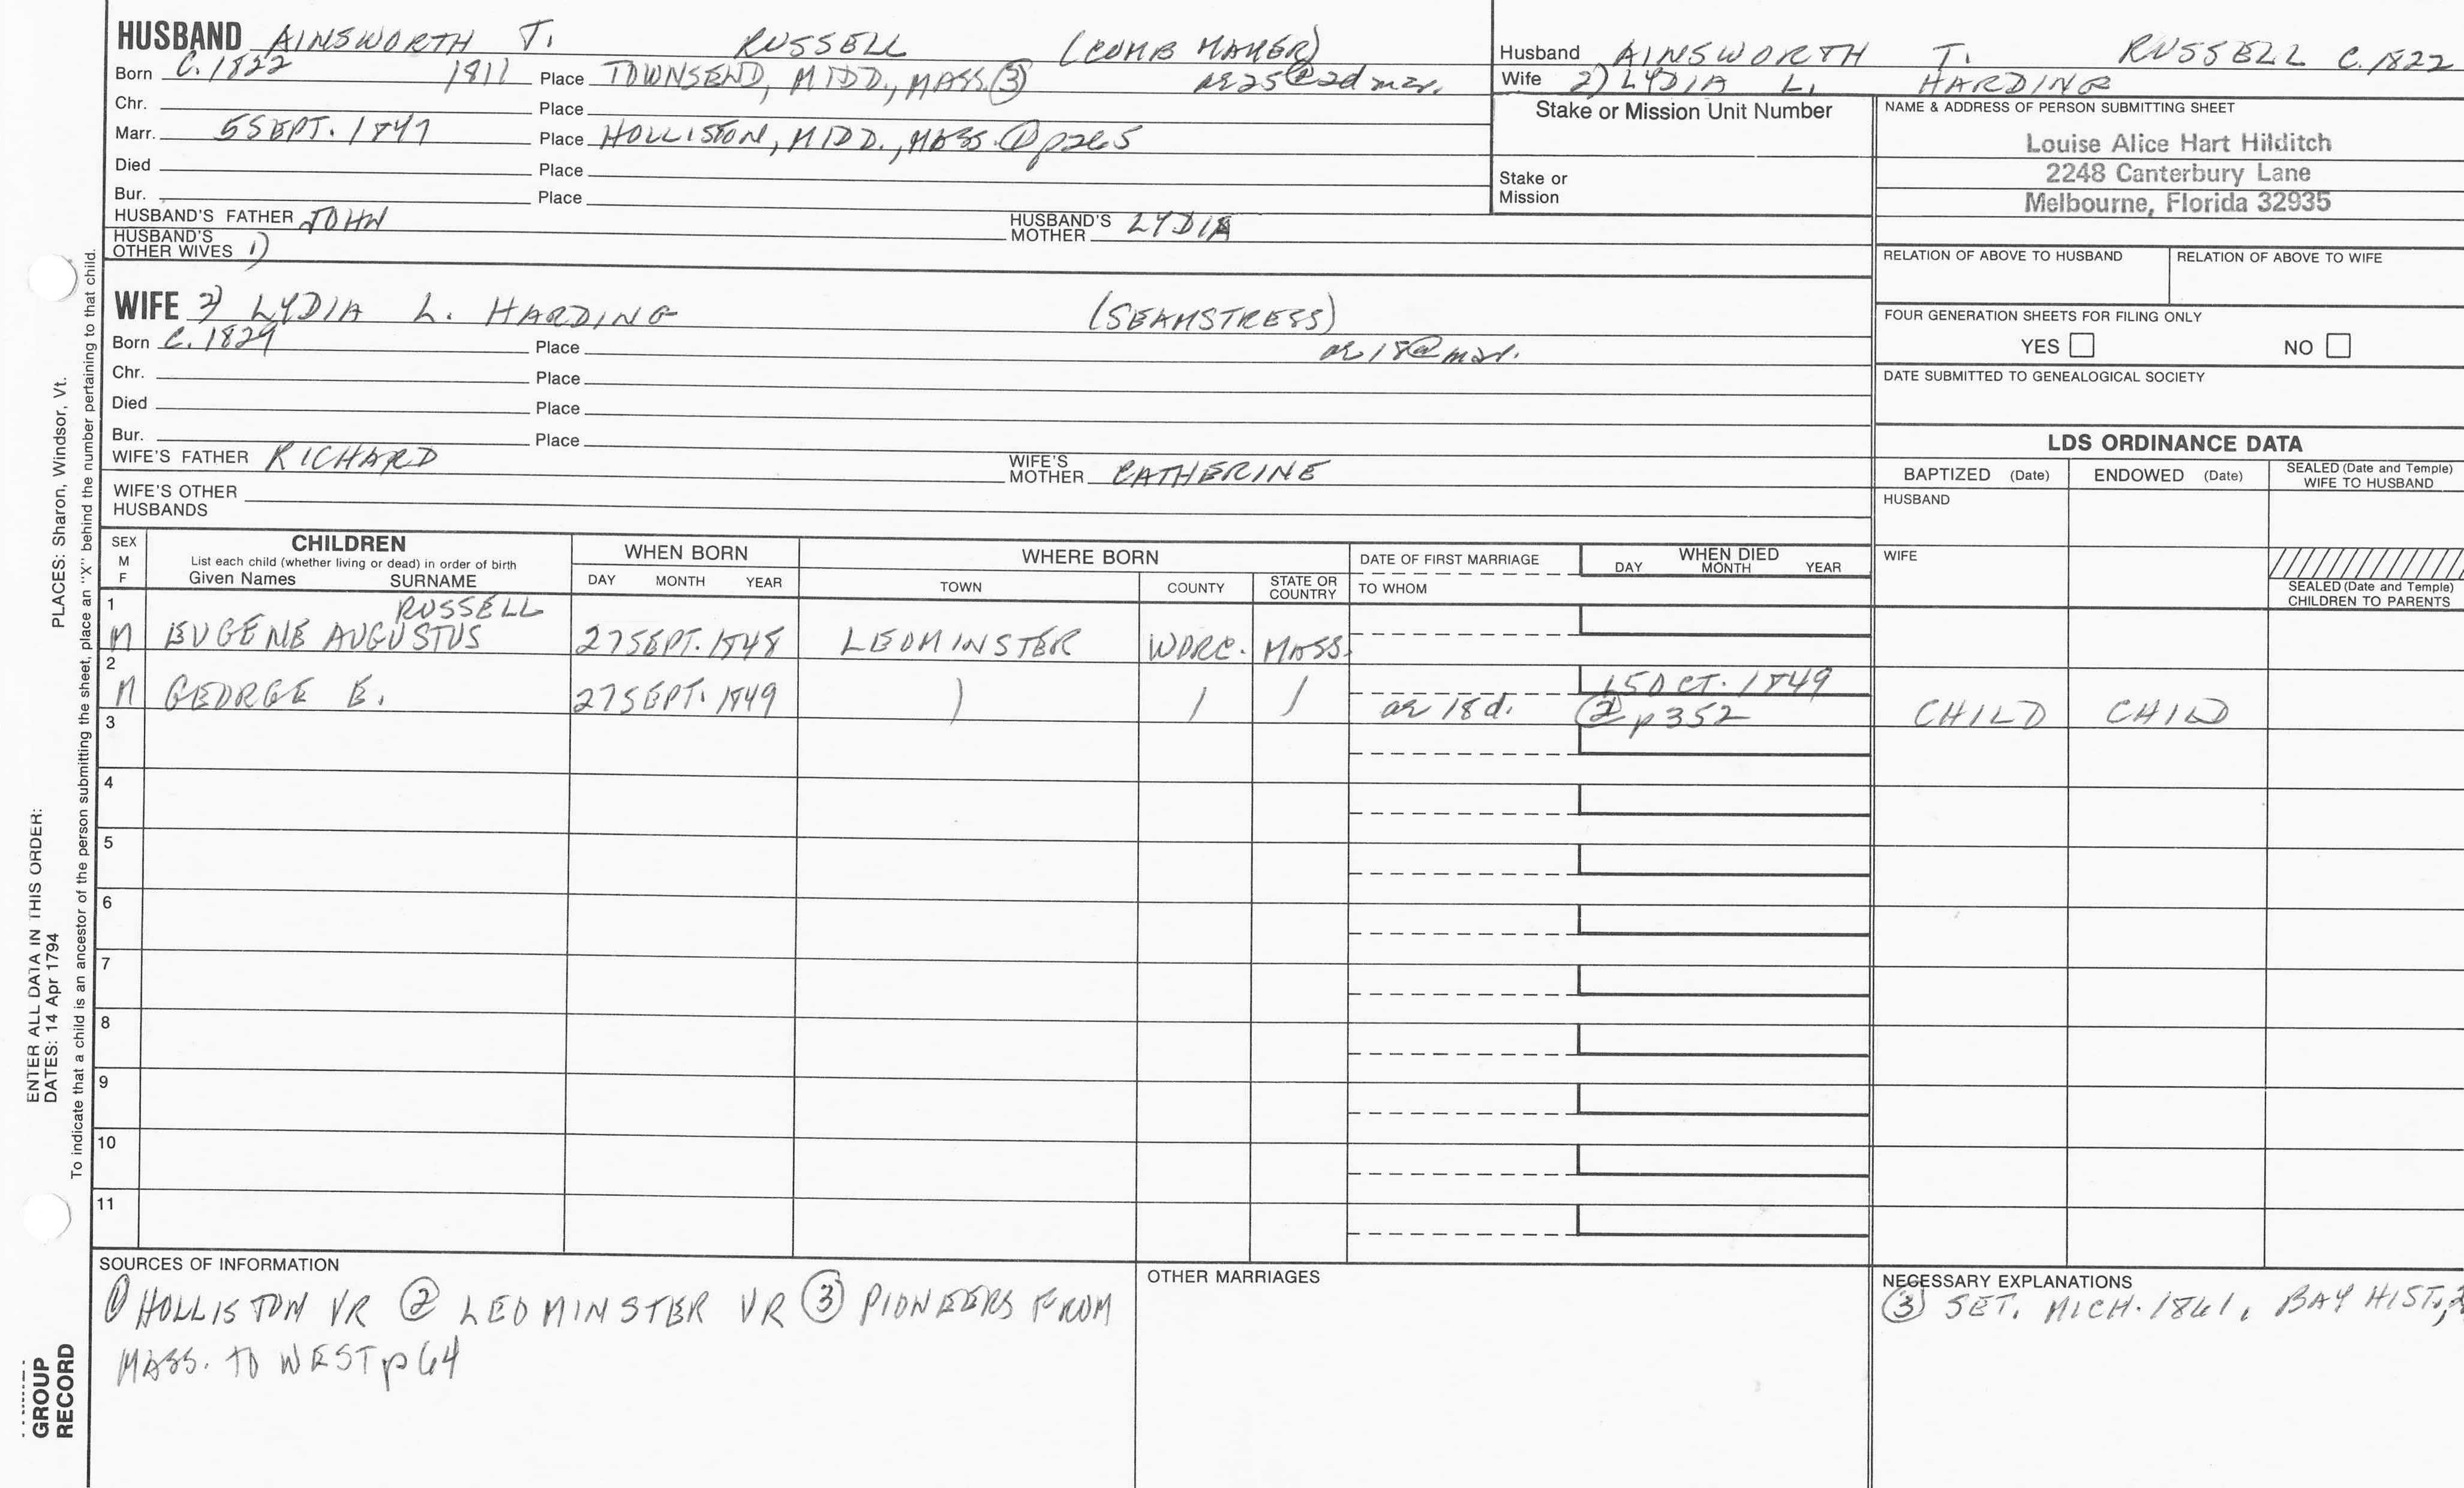 HUSBAND AINSWORTH T. RUSSELL (COMB MAKER)
Born C. 1822 1811 Place TOWNSEND, MIDD., MASS. ③ ae 25 @ 2d mar.
Chr. Place
Marr. 5 SEPT. 1847 Place HOLLISTON, MIDD., MASS. ① p265
Died Place
Bur. Place
HUSBAND'S FATHER JOHN HUSBAND'S MOTHER LYDIA
HUSBAND'S OTHER WIVES 1)
WIFE 2) LYDIA L. HARDING (SEAMSTRESS)
Born C. 1829 Place ae 18 @ mar.
Chr. Place
Died Place
Bur. Place
WIFE'S FATHER RICHARD WIFE'S MOTHER CATHERINE
WIFE'S OTHER HUSBANDS
Husband AINSWORTH T. RUSSELL C. 1822
Wife 2) LYDIA L. HARDING
Stake or Mission Unit Number
Stake or
Mission
NAME & ADDRESS OF PERSON SUBMITTING SHEET
Louise Alice Hart Hilditch
2248 Canterbury Lane
Melbourne, Florida 32935
RELATION OF ABOVE TO HUSBAND RELATION OF ABOVE TO WIFE
FOUR GENERATION SHEETS FOR FILING ONLY
YES NO
DATE SUBMITTED TO GENEALOGICAL SOCIETY
LDS ORDINANCE DATA
BAPTIZED (Date) ENDOWED (Date) SEALED (Date and Temple) WIFE TO HUSBAND
HUSBAND
WIFE
SEALED (Date and Temple) CHILDREN TO PARENTS
SEX M F
CHILDREN
List each child (whether living or dead) in order of birth
Given Names SURNAME
WHEN BORN
DAY MONTH YEAR
WHERE BORN
TOWN COUNTY STATE OR COUNTRY
DATE OF FIRST MARRIAGE
TO WHOM
WHEN DIED
DAY MONTH YEAR
1 RUSSELL
M EUGENE AUGUSTUS 27 SEPT. 1848 LEOMINSTER WORC. MASS.
2 15 OCT. 1849
M GEORGE E. 27 SEPT. 1849 ) / / ae 18 d. ② p352 CHILD CHILD
3
4
5
6
7
8
9
10
11
SOURCES OF INFORMATION
① HOLLISTON VR ② LEOMINSTER VR ③ PIONEERS FROM
MASS. TO WEST p64
OTHER MARRIAGES
NECESSARY EXPLANATIONS
③ SET. MICH. 1861. BAY HIST.,
PLACES: Sharon, Windsor, Vt.
To indicate that a child is an ancestor of the person submitting the sheet, place an "X" behind the number pertaining to that child.
ENTER ALL DATA IN THIS ORDER:
DATES: 14 Apr 1794
GROUP
RECORD